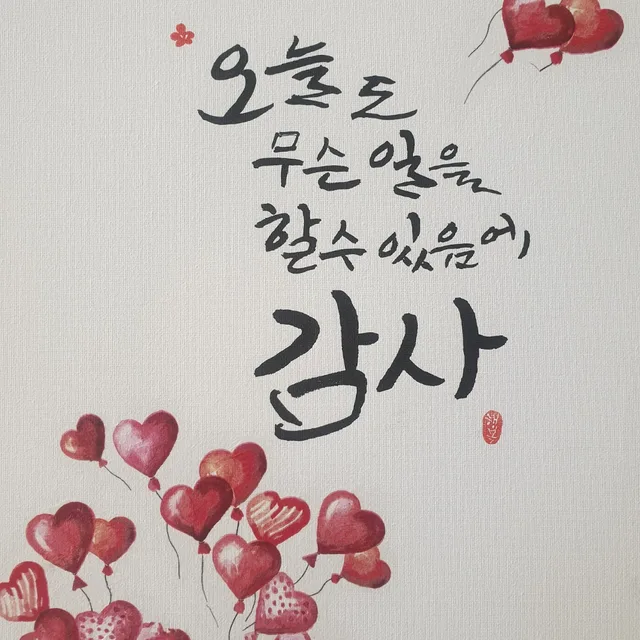 오늘도
무슨 일을
할 수 있음에
감사